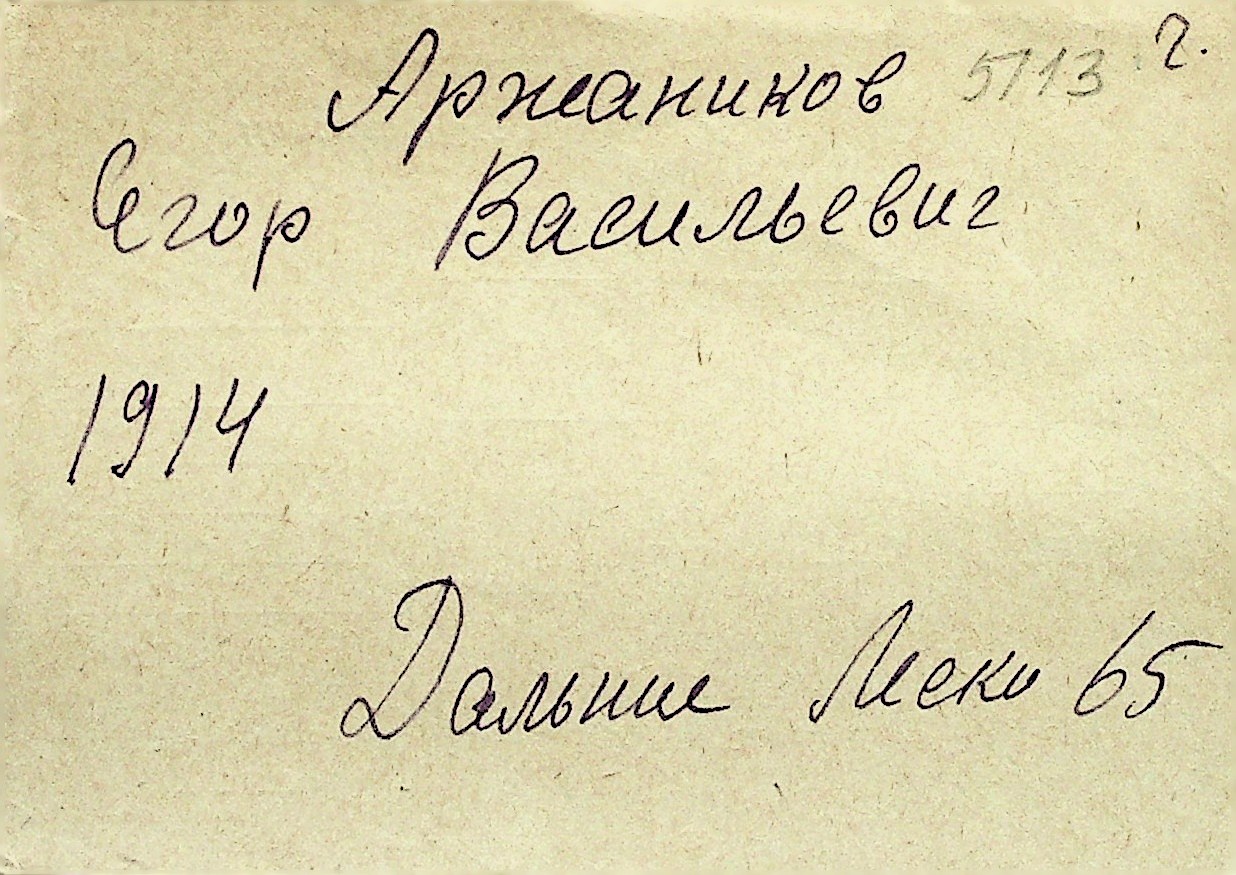 Аржаников 5113 г.
Егор Васильевич
1914
Дальние Лески 65